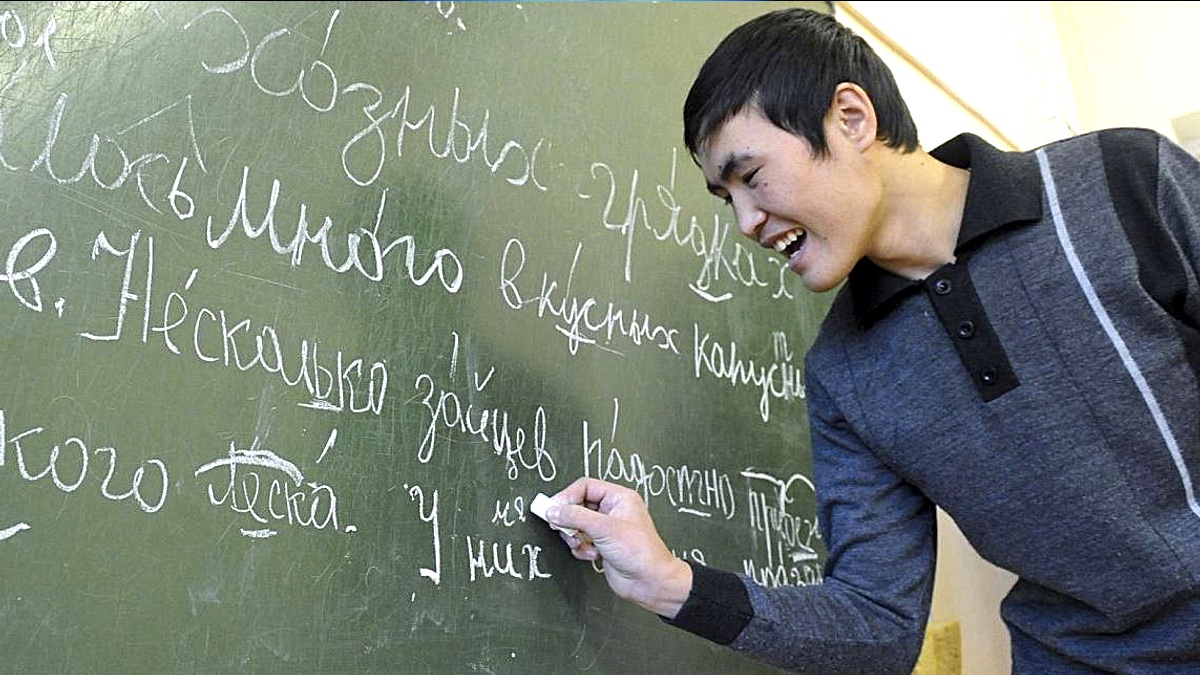 хо́зных гря́дках
лось мно́го вку́сных капустн
в. Не́сколько за́йцев ра́достно прибеж
кого леска́. У них